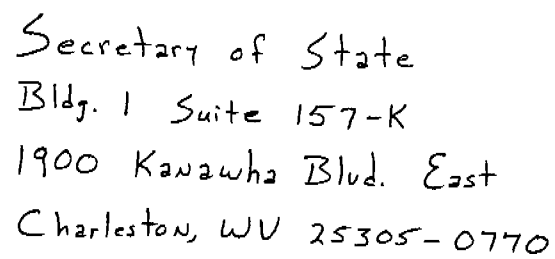 Secretary of State
Bldg. 1 Suite 157-K
1900 Kanawha Blvd. East
Charleston, WV 25305-0770